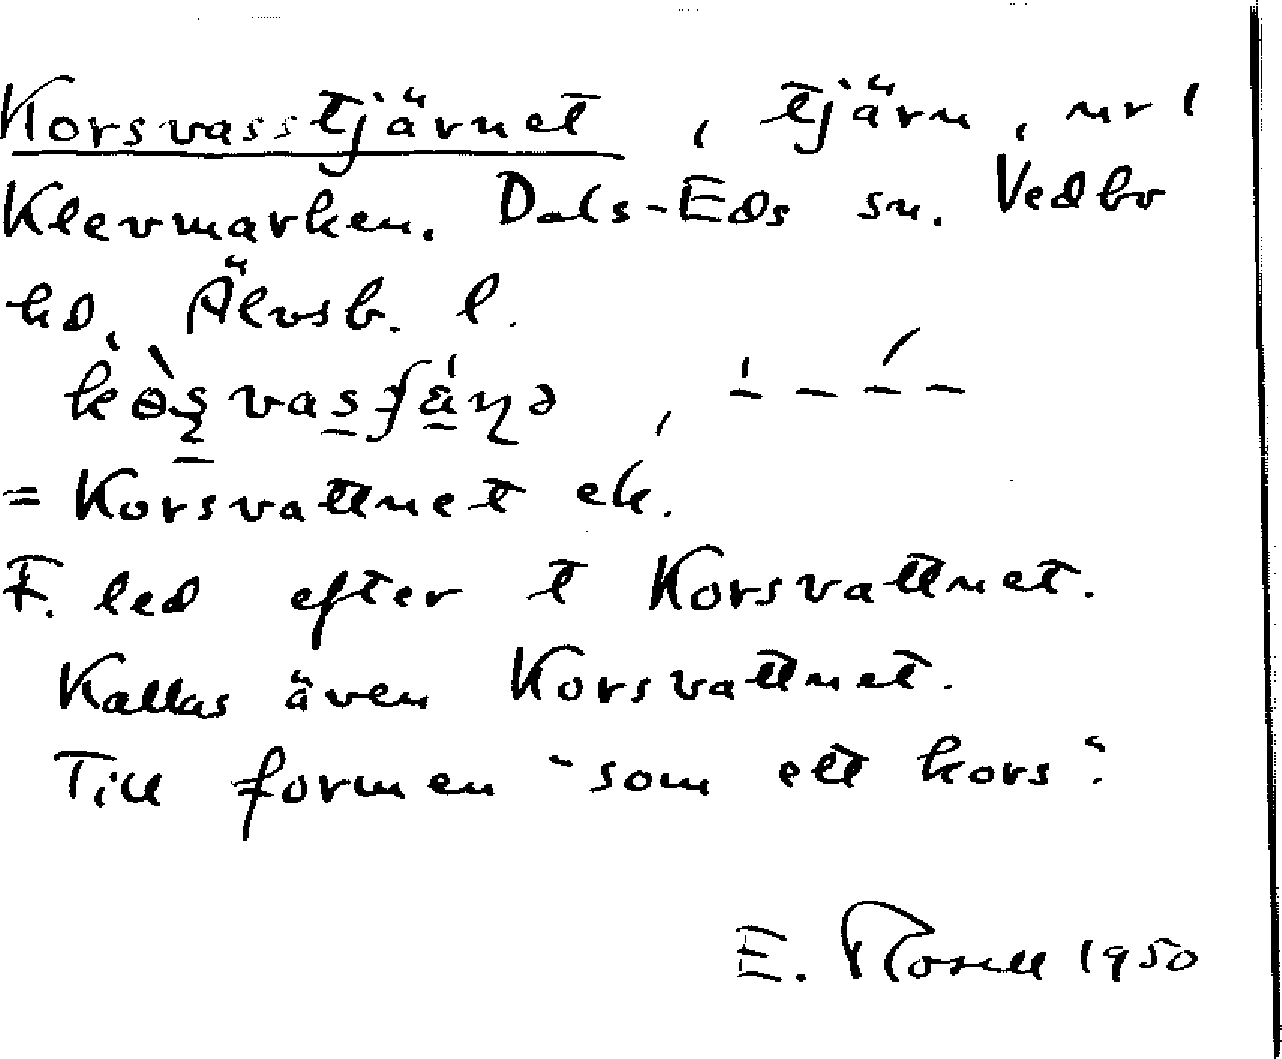 Korsvasstjärnet, tjärn, nr 1
Klevmarken. Dals-Eds sn. Vedbo
hd. Älvsb. l.
= Korsvattnet ek.
F. led efter t Korsvattnet.
Kallas även Korsvattnet.
Till formen "som ett kors".
E. Rosell 1950